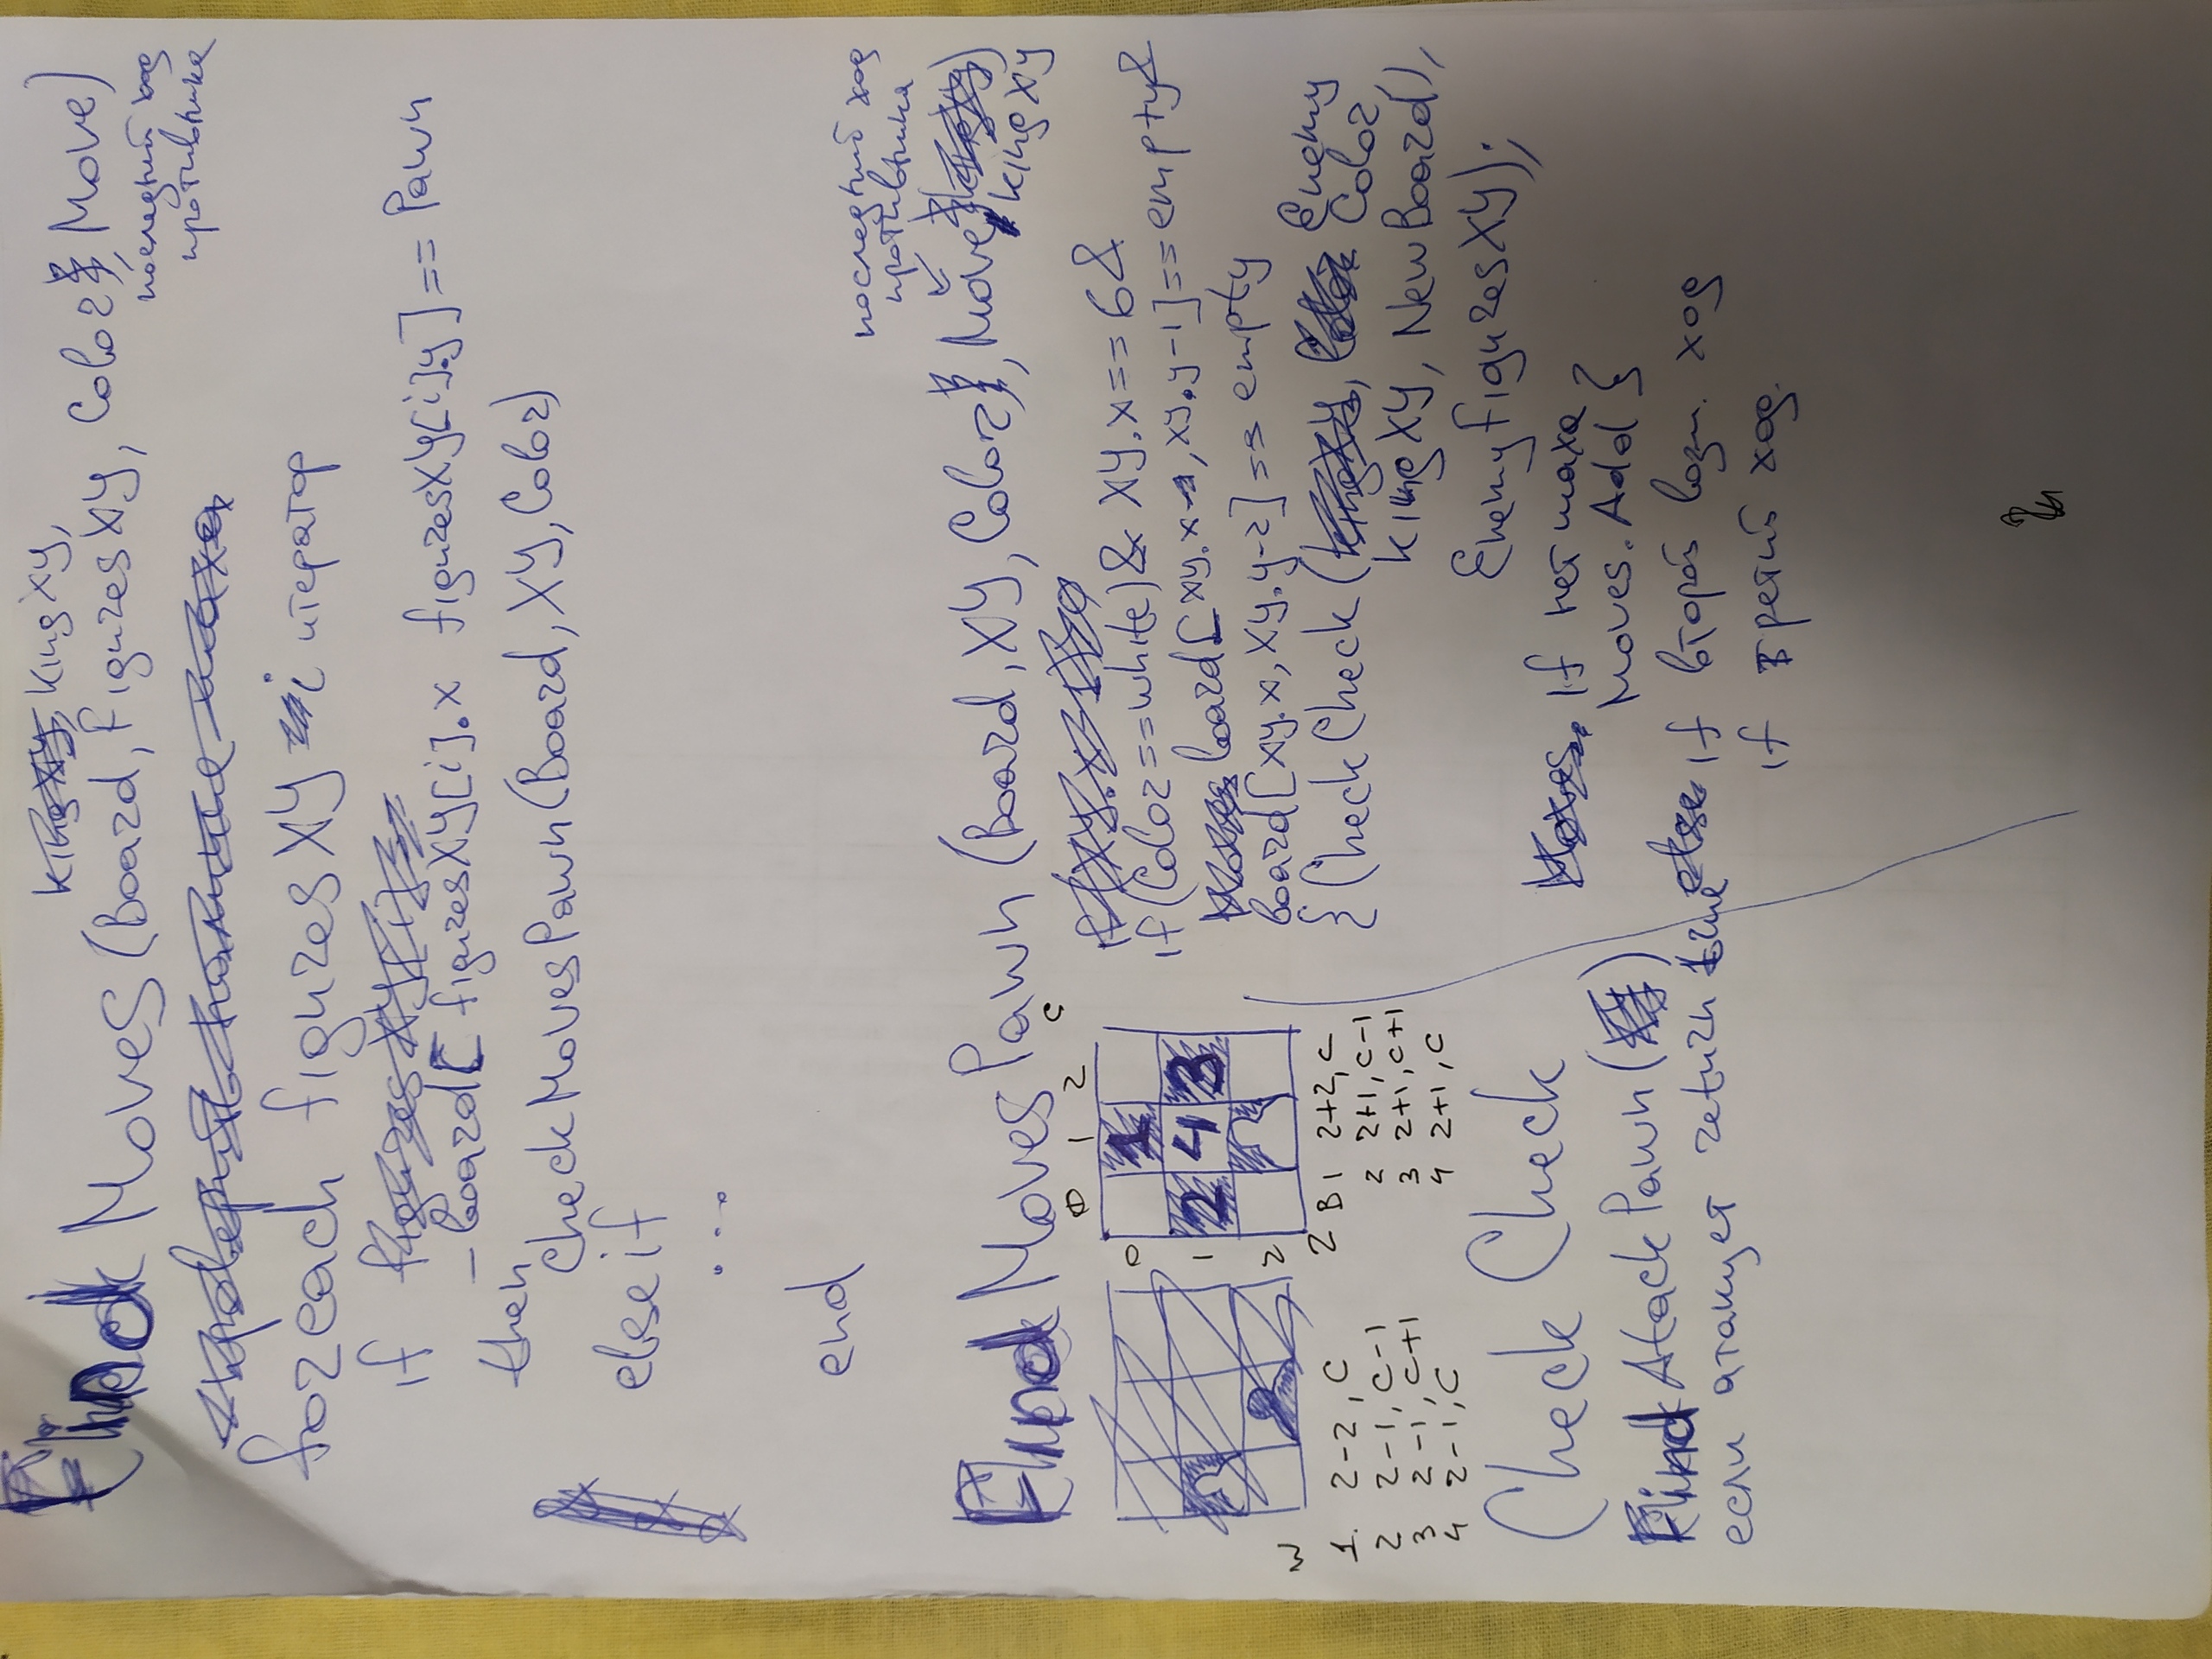 King XY,
Find Moves (Board, figuresXY, Color, Move)
последний ход
противника
foreach figuresXY i итератор
if
board[figuresXY[i].x figuresXY[i].y] == Pawn
then CheckMovesPawn(Board, XY, Color)
else if
...
end
последний ход
противника
Find Moves Pawn (Board, XY, Color, Move, kingXY
if (Color == white) & XY.x == 6 &
board[xy.x, xy.y-1] == empty &
Board[xy.x, xy.y-2] == empty
{ (CheckCheck ( Enemy Color,
kingXY, NewBoard),
EnemyfiguresXY);
If нет шаха
Moves.Add }
if второй возм. ход
if третий ход
0 1 2 c
0 1
1 2 4 3
2
r
W
1. r-2, c
2 r-1, c-1
3 r-1, c+1
4 r-1, c
B 1 r+2, c
2 r+1, c-1
3 r+1, c+1
4 r+1, c
Check Check
Find Atack Pawn ( )
если атакует return true